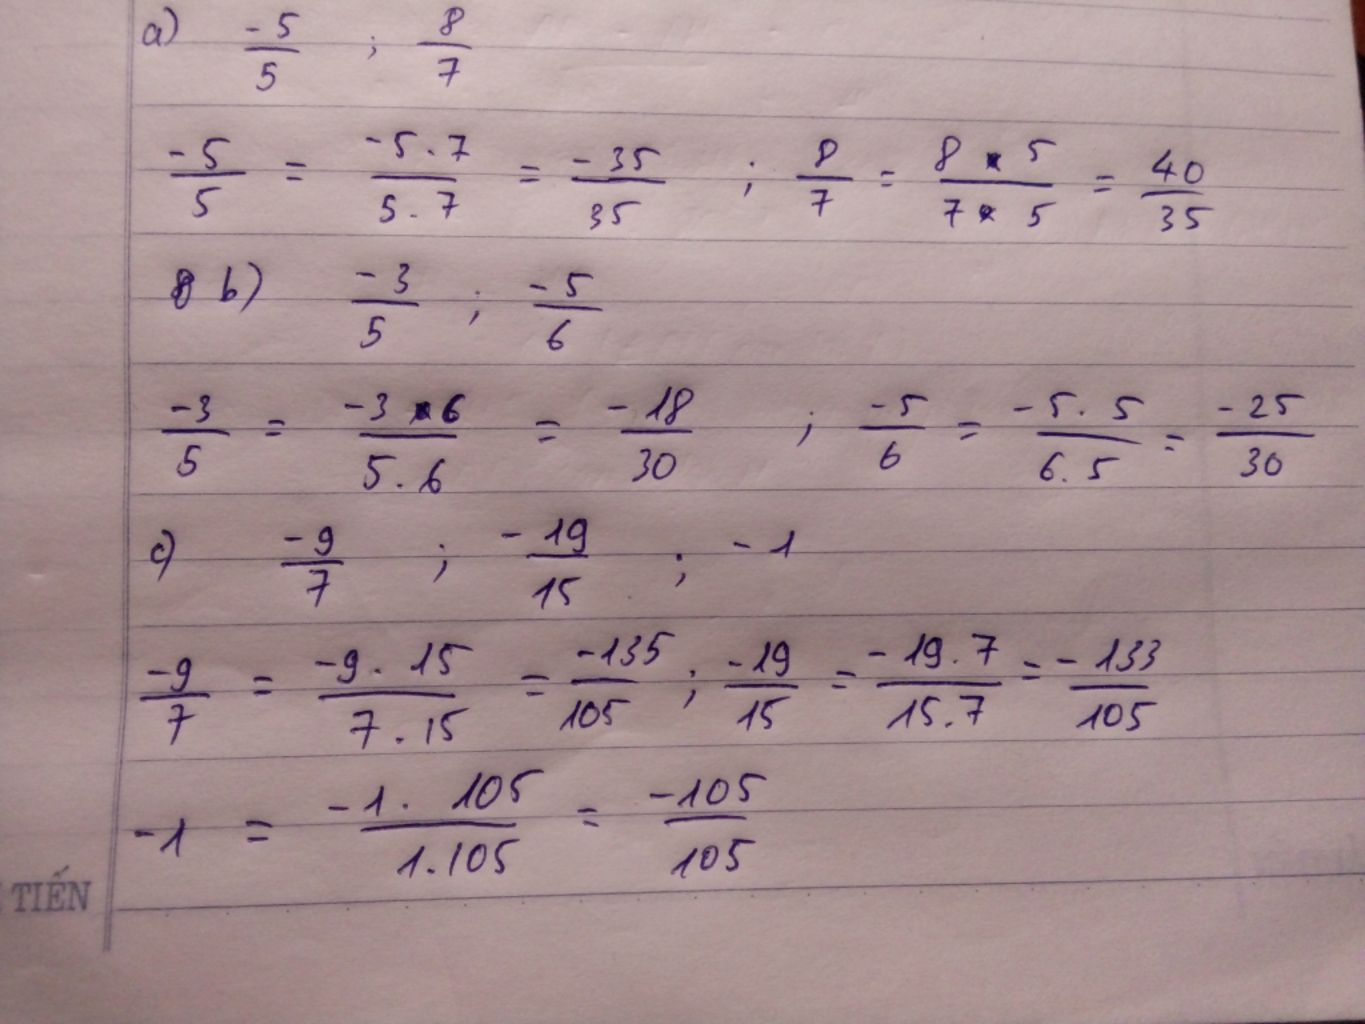 a) -5/5 ; 8/7
-5/5 = -5.7/5.7 = -35/35 ; 8/7 = 8 . 5/7 . 5 = 40/35
b) -3/5 ; -5/6
-3/5 = -3 . 6/5.6 = -18/30 ; -5/6 = -5.5/6.5 = -25/30
c) -9/7 ; -19/15 ; -1
-9/7 = -9.15/7.15 = -135/105 ; -19/15 = -19.7/15.7 = -133/105
-1 = -1.105/1.105 = -105/105
TIẾN